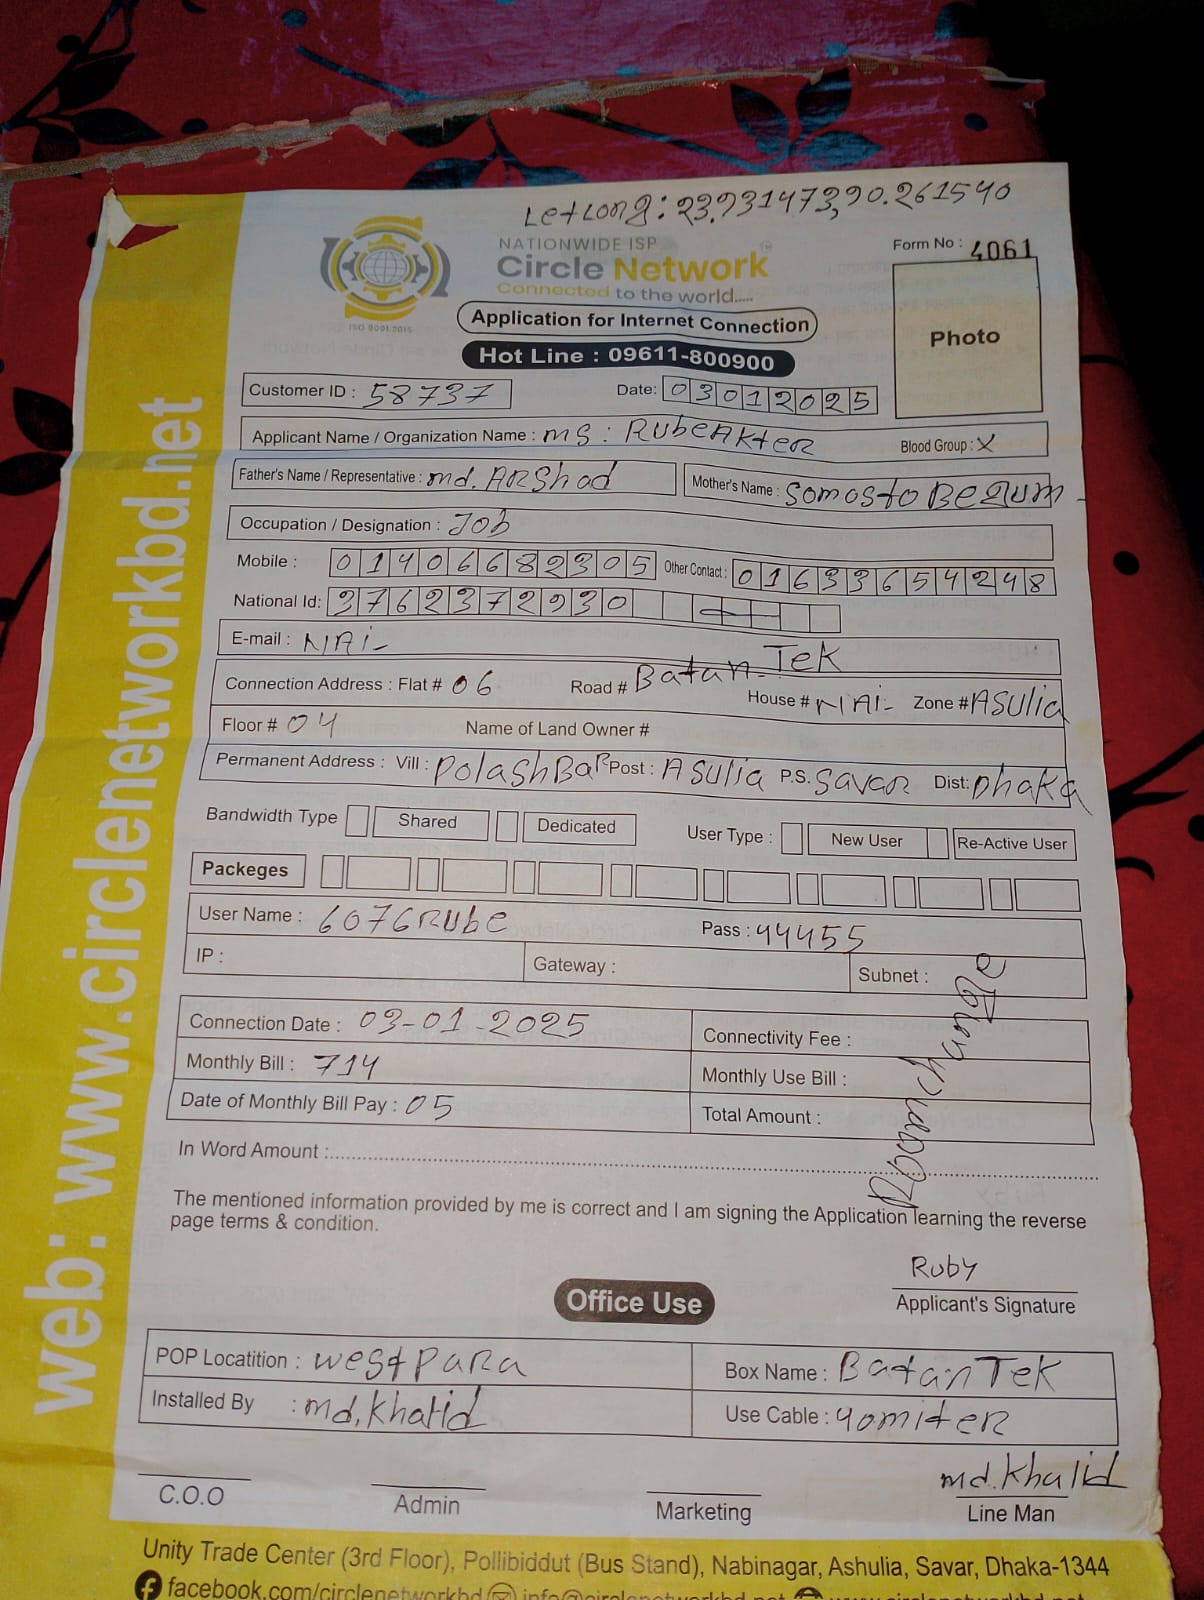 Let Long: 23.931473,90.261540
NATIONWIDE ISP
Circle Network™
Connected to the world.....
ISO 9001:2015
Form No : 4061
Photo
Application for Internet Connection
Hot Line : 09611-800900
Customer ID : 58737 Date: 03012025
Applicant Name / Organization Name : ms : RubeAkter Blood Group : X
Father's Name / Representative : md. ARShad Mother's Name : Somosto BeGum
Occupation / Designation : Job
Mobile : 01406682305 Other Contact : 01633654248
National Id: 3762372930
E-mail : NAi-
Connection Address : Flat # 06 Road # Batan-Tek House # NAi- Zone # ASulia
Floor # 04 Name of Land Owner #
Permanent Address : Vill : PolashBaR Post : ASulia P.S. SavaR Dist: Dhaka
Bandwidth Type Shared Dedicated User Type : New User Re-Active User
Packeges
User Name : 6076Rube Pass : 44455
IP : Gateway : Subnet :
Connection Date : 03-01-2025 Connectivity Fee :
Monthly Bill : 714 Monthly Use Bill :
Date of Monthly Bill Pay : 05 Total Amount :
In Word Amount :
The mentioned information provided by me is correct and I am signing the Application learning the reverse
page terms & condition.
Ruby
Applicant's Signature
Office Use
POP Locatition : west para Box Name : Batan Tek
Installed By : md. Khalid Use Cable : 40miteR
md. Khalid
C.O.O Admin Marketing Line Man
Unity Trade Center (3rd Floor), Pollibiddut (Bus Stand), Nabinagar, Ashulia, Savar, Dhaka-1344
facebook.com/circlenetworkbd info@circlenetworkbd.net www.circlenetworkbd.net
web: www.circlenetworkbd.net